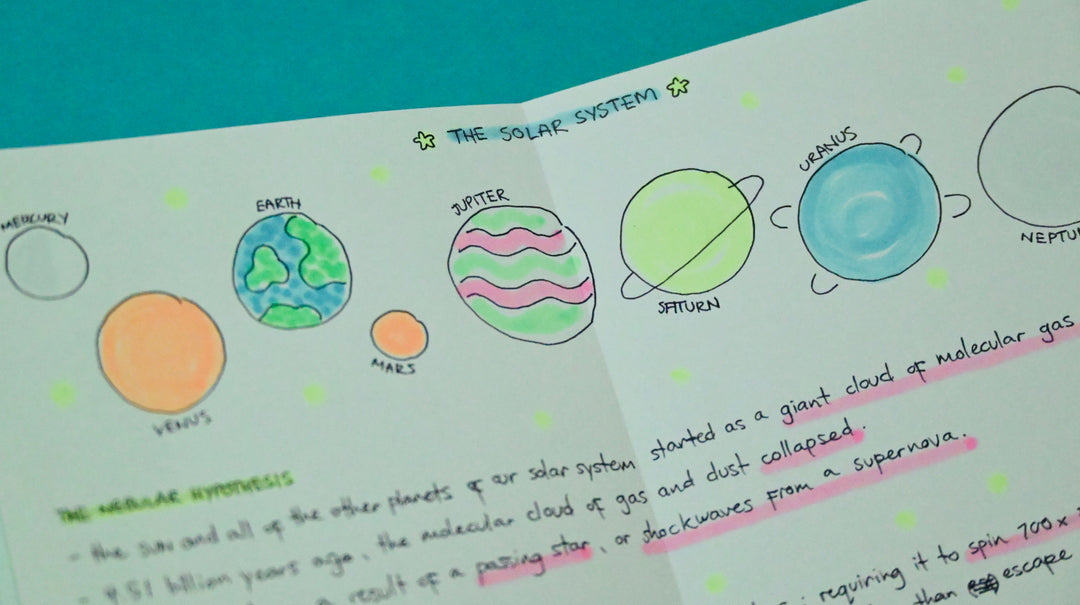 THE SOLAR SYSTEM
MERCURY
VENUS
EARTH
MARS
JUPITER
SATURN
URANUS
NEPTU
THE NEBULAR HYPOTHESIS
- the sun and all of the other planets of our solar system started as a giant cloud of molecular gas
- billion years ago, the molecular cloud of gas and dust collapsed.
a result of a passing star, or shockwaves from a supernova.
requiring it to spin 700x
than escape